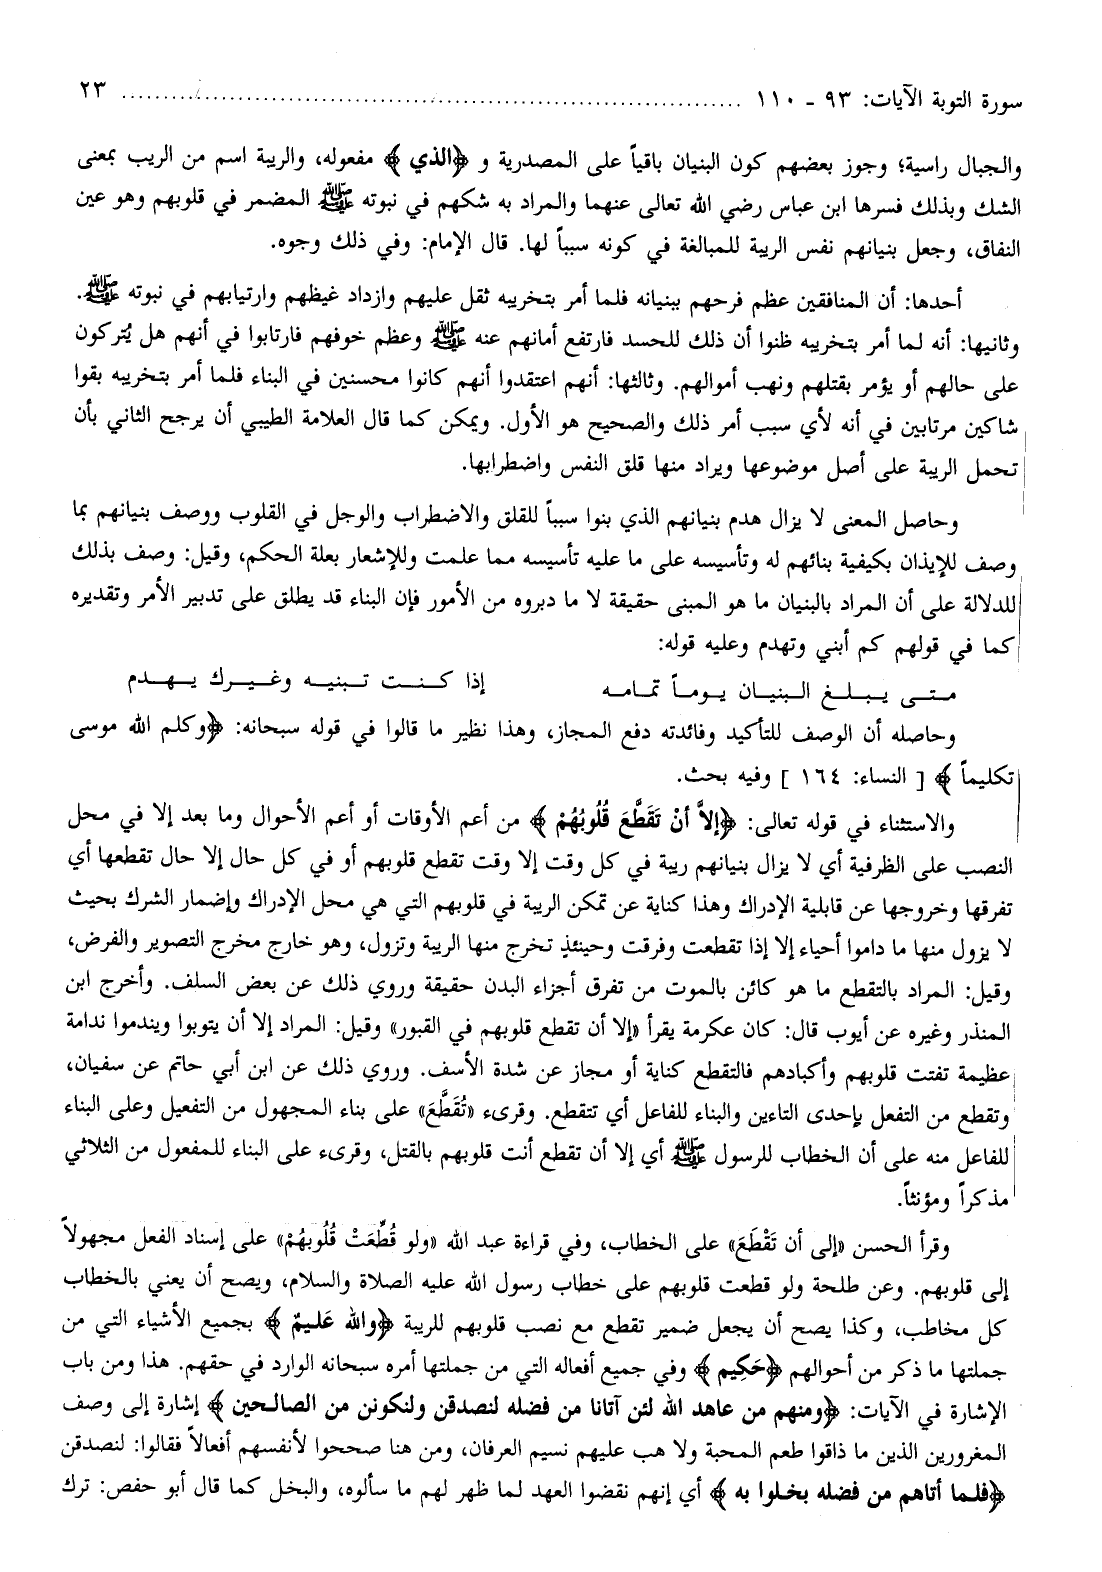 سورة التوبة الآيات: ٩٣ - ١١٠ ........................................ ٢٣
والجبال راسية؛ وجوز بعضهم كون البنيان باقياً على المصدرية و ﴿الذي﴾ مفعوله، والريبة اسم من الريب بمعنى
الشك وبذلك فسرها ابن عباس رضي الله تعالى عنهما والمراد به شكهم في نبوته ﷺ المضمر في قلوبهم وهو عين
النفاق، وجعل بنيانهم نفس الريبة للمبالغة في كونه سبباً لها. قال الإمام: وفي ذلك وجوه.
أحدها: أن المنافقين عظم فرحهم ببنيانه فلما أمر بتخريبه ثقل عليهم وازداد غيظهم وارتيابهم في نبوته ﷺ.
وثانيها: أنه لما أمر بتخريبه ظنوا أن ذلك للحسد فارتفع أمانهم عنه ﷺ وعظم خوفهم فارتابوا في أنهم هل يُتركون
على حالهم أو يؤمر بقتلهم ونهب أموالهم. وثالثها: أنهم اعتقدوا أنهم كانوا محسنين في البناء فلما أمر بتخريبه بقوا
شاكين مرتابين في أنه لأي سبب أمر ذلك والصحيح هو الأول. ويمكن كما قال العلامة الطيبي أن يرجح الثاني بأن
تحمل الريبة على أصل موضوعها ويراد منها قلق النفس واضطرابها.
وحاصل المعنى لا يزال هدم بنيانهم الذي بنوا سبباً للقلق والاضطراب والوجل في القلوب ووصف بنيانهم بما
وصف للإيذان بكيفية بنائهم له وتأسيسه على ما عليه تأسيسه مما علمت وللإشعار بعلة الحكم، وقيل: وصف بذلك
للدلالة على أن المراد بالبنيان ما هو المبنى حقيقة لا ما دبروه من الأمور فإن البناء قد يطلق على تدبير الأمر وتقديره
كما في قولهم كم أبني وتهدم وعليه قوله:
متى يبلغ البنيان يوماً تمامه إذا كنت تبنيه وغيرك يهدم
وحاصله أن الوصف للتأكيد وفائدته دفع المجاز، وهذا نظير ما قالوا في قوله سبحانه: ﴿وكلم الله موسى
تكليماً﴾ [ النساء: ١٦٤ ] وفيه بحث.
والاستثناء في قوله تعالى: ﴿إلاَّ أنْ تَقَطَّعَ قُلُوبُهُمْ﴾ من أعم الأوقات أو أعم الأحوال وما بعد إلا في محل
النصب على الظرفية أي لا يزال بنيانهم ريبة في كل وقت إلا وقت تقطع قلوبهم أو في كل حال إلا حال تقطعها أي
تفرقها وخروجها عن قابلية الإدراك وهذا كناية عن تمكن الريبة في قلوبهم التي هي محل الإدراك وإضمار الشرك بحيث
لا يزول منها ما داموا أحياء إلا إذا تقطعت وفرقت وحينئذٍ تخرج منها الريبة وتزول، وهو خارج مخرج التصوير والفرض،
وقيل: المراد بالتقطع ما هو كائن بالموت من تفرق أجزاء البدن حقيقة وروي ذلك عن بعض السلف. وأخرج ابن
المنذر وغيره عن أيوب قال: كان عكرمة يقرأ «إلا أن تقطع قلوبهم في القبور» وقيل: المراد إلا أن يتوبوا ويندموا ندامة
عظيمة تفتت قلوبهم وأكبادهم فالتقطع كناية أو مجاز عن شدة الأسف. وروي ذلك عن ابن أبي حاتم عن سفيان،
وتقطع من التفعل بإحدى التاءين والبناء للفاعل أي تتقطع. وقرىء «تُقَطَّعَ» على بناء المجهول من التفعيل وعلى البناء
للفاعل منه على أن الخطاب للرسول ﷺ أي إلا أن تقطع أنت قلوبهم بالقتل، وقرىء على البناء للمفعول من الثلاثي
مذكراً ومؤنثاً.
وقرأ الحسن «إلى أن تَقْطَعَ» على الخطاب، وفي قراءة عبد الله «ولو قُطِّعَتْ قُلُوبهُمْ» على إسناد الفعل مجهولاً
إلى قلوبهم. وعن طلحة ولو قطعت قلوبهم على خطاب رسول الله عليه الصلاة والسلام، ويصح أن يعني بالخطاب
كل مخاطب، وكذا يصح أن يجعل ضمير تقطع مع نصب قلوبهم للريبة ﴿والله عَلـيمٌ﴾ بجميع الأشياء التي من
جملتها ما ذكر من أحوالهم ﴿حَكِيم﴾ وفي جميع أفعاله التي من جملتها أمره سبحانه الوارد في حقهم. هذا ومن باب
الإشارة في الآيات: ﴿ومنهم من عاهد الله لئن آتانا من فضله لنصدقن ولنكونن من الصالـحين﴾ إشارة إلى وصف
المغرورين الذين ما ذاقوا طعم المحبة ولا هب عليهم نسيم العرفان، ومن هنا صححوا لأنفسهم أفعالاً فقالوا: لنصدقن
﴿فلـما أتاهم من فضله بخلوا به﴾ أي إنهم نقضوا العهد لما ظهر لهم ما سألوه، والبخل كما قال أبو حفص: ترك